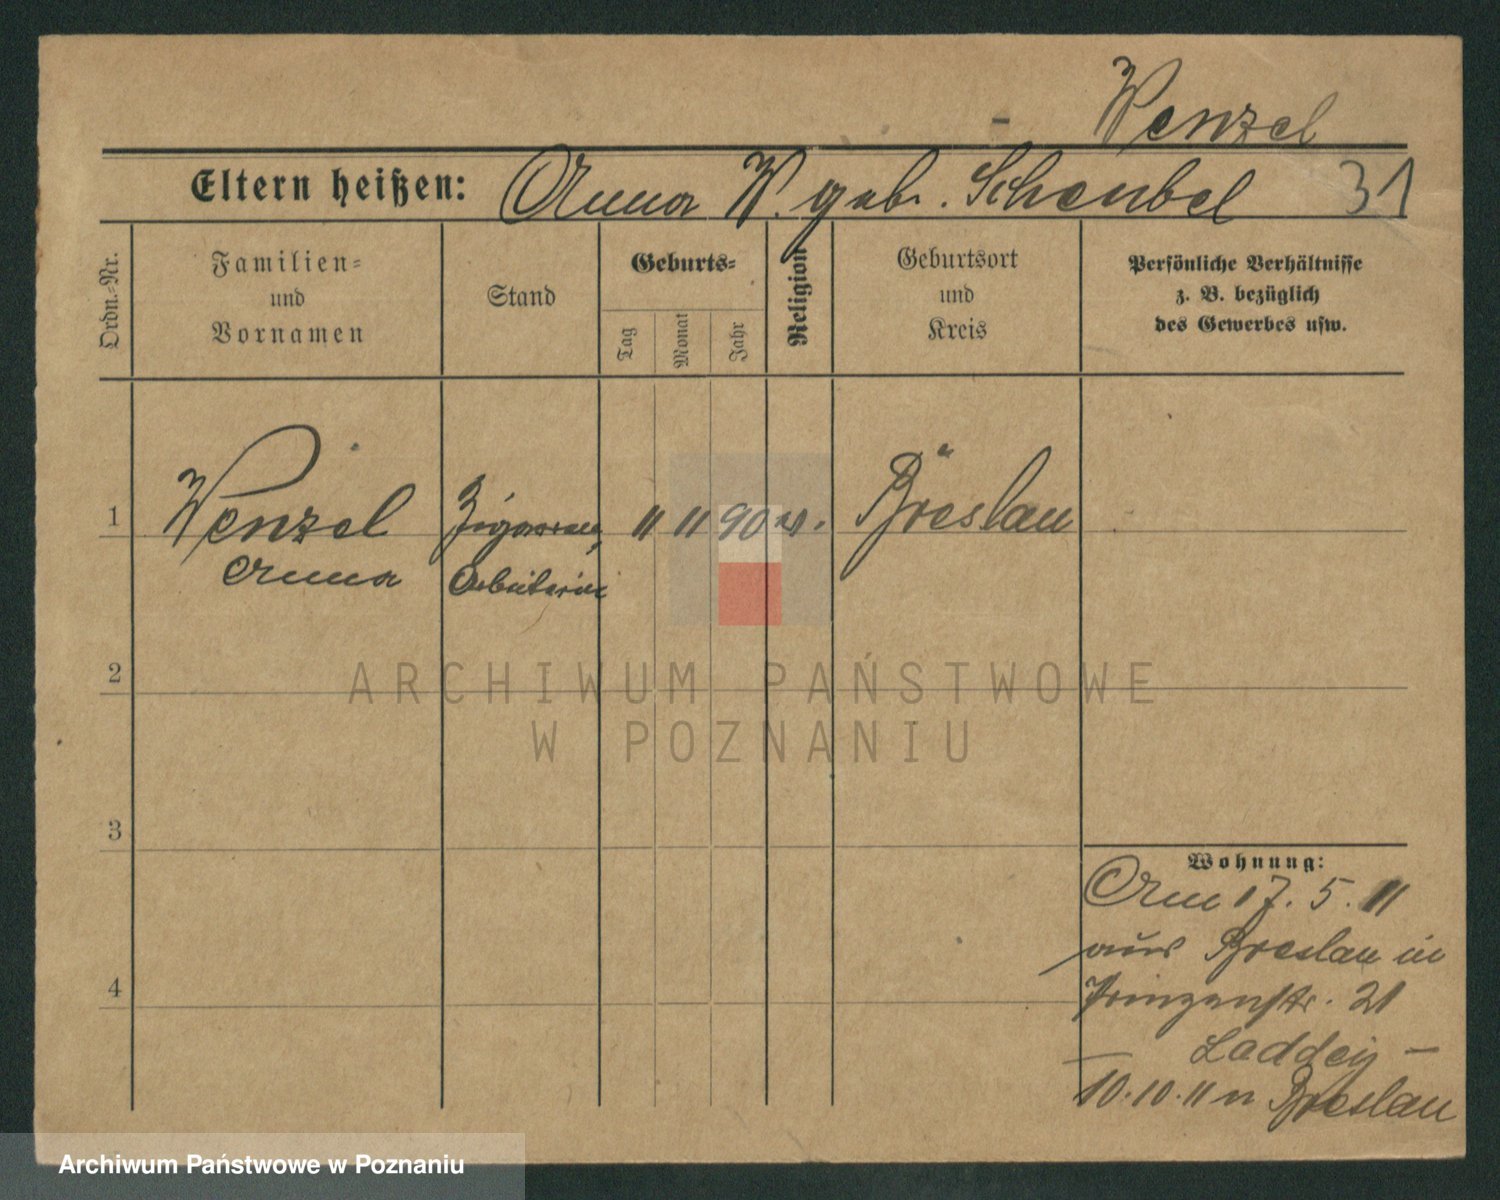 Wenzel
Eltern heißen: Anna W. geb. Schenbel 31
Ordn.-Nr.
Familien-
und
Vornamen
Stand
Geburts-
Tag
Monat
Jahr
Religion
Geburtsort
und
Kreis
Persönliche Verhältnisse
z. B. bezüglich
des Gewerbes usw.
1 Wenzel Zigarren 11 11 90 Breslau
Anna Arbeiterin
2
3
4
Wohnung:
Am 17. 5. 11
aus Breslau in
Prinzenstr. 21
Laddey -
- 10.10.11 n Breslau
ARCHIWUM PAŃSTWOWE
W POZNANIU
Archiwum Państwowe w Poznaniu